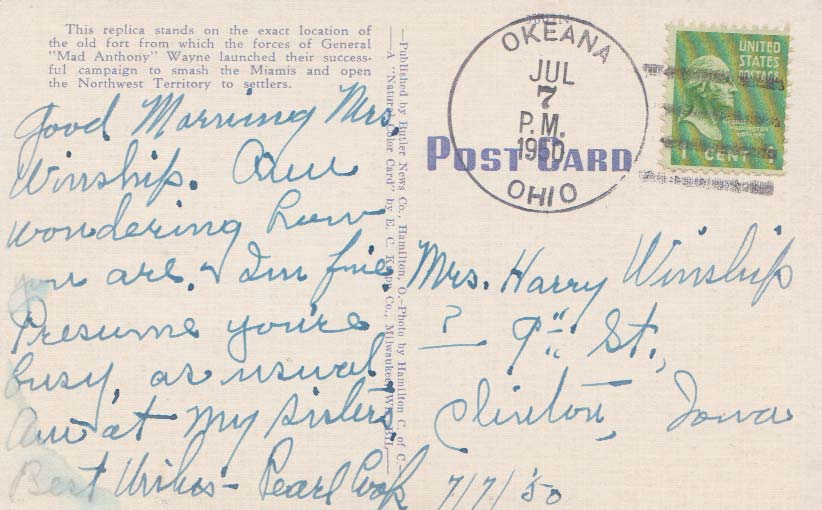 This replica stands on the exact location of
the old fort from which the forces of General
"Mad Anthony" Wayne launched their success-
ful campaign to smash the Miamis and open
the Northwest Territory to settlers.
Good Morning Mrs.
Winship. Am
wondering how
you are. I'm fine
Presume you're
busy, as usual.
Am at my sisters.
Best Wishes - Pearl Cook 7/7/50
—Published by Butler News Co., Hamilton, O.—Photo by Hamilton C. of C.—
—A "Natural Color Card" by E. C. Kropp Co., Milwaukee, Wis.
POST CARD
OKEANA
JUL
7
P.M.
1950
OHIO
UNITED
STATES
POSTAGE
GEORGE
WASHINGTON
1 CENT
Mrs. Harry Winship
? — 9th St.,
Clinton, Iowa